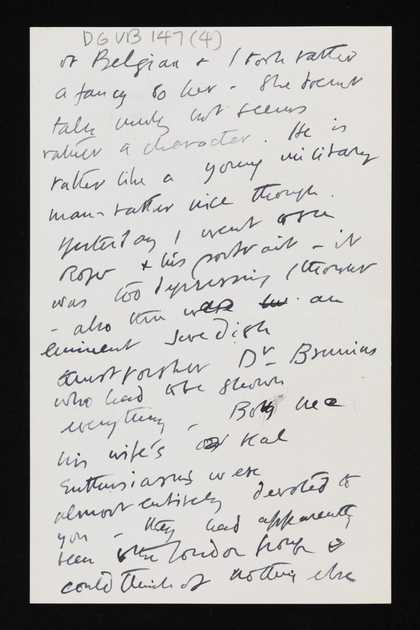 DG VB 147 (4)
or Belgian & I took rather
a fancy to her - She doesnt
talk much but seems
rather a character. He is
rather like a young military
man - rather nice though.
Yesterday I went
Roger & his portrait - it
was too depressing I thought
- also then was an
eminent Swedish
philosopher Dr Brunius
who had to be shown
everything - Both he
his wife's real
enthusiasms were
almost entirely devoted to
you - they had apparently
seen the London group &
could think of nothing else